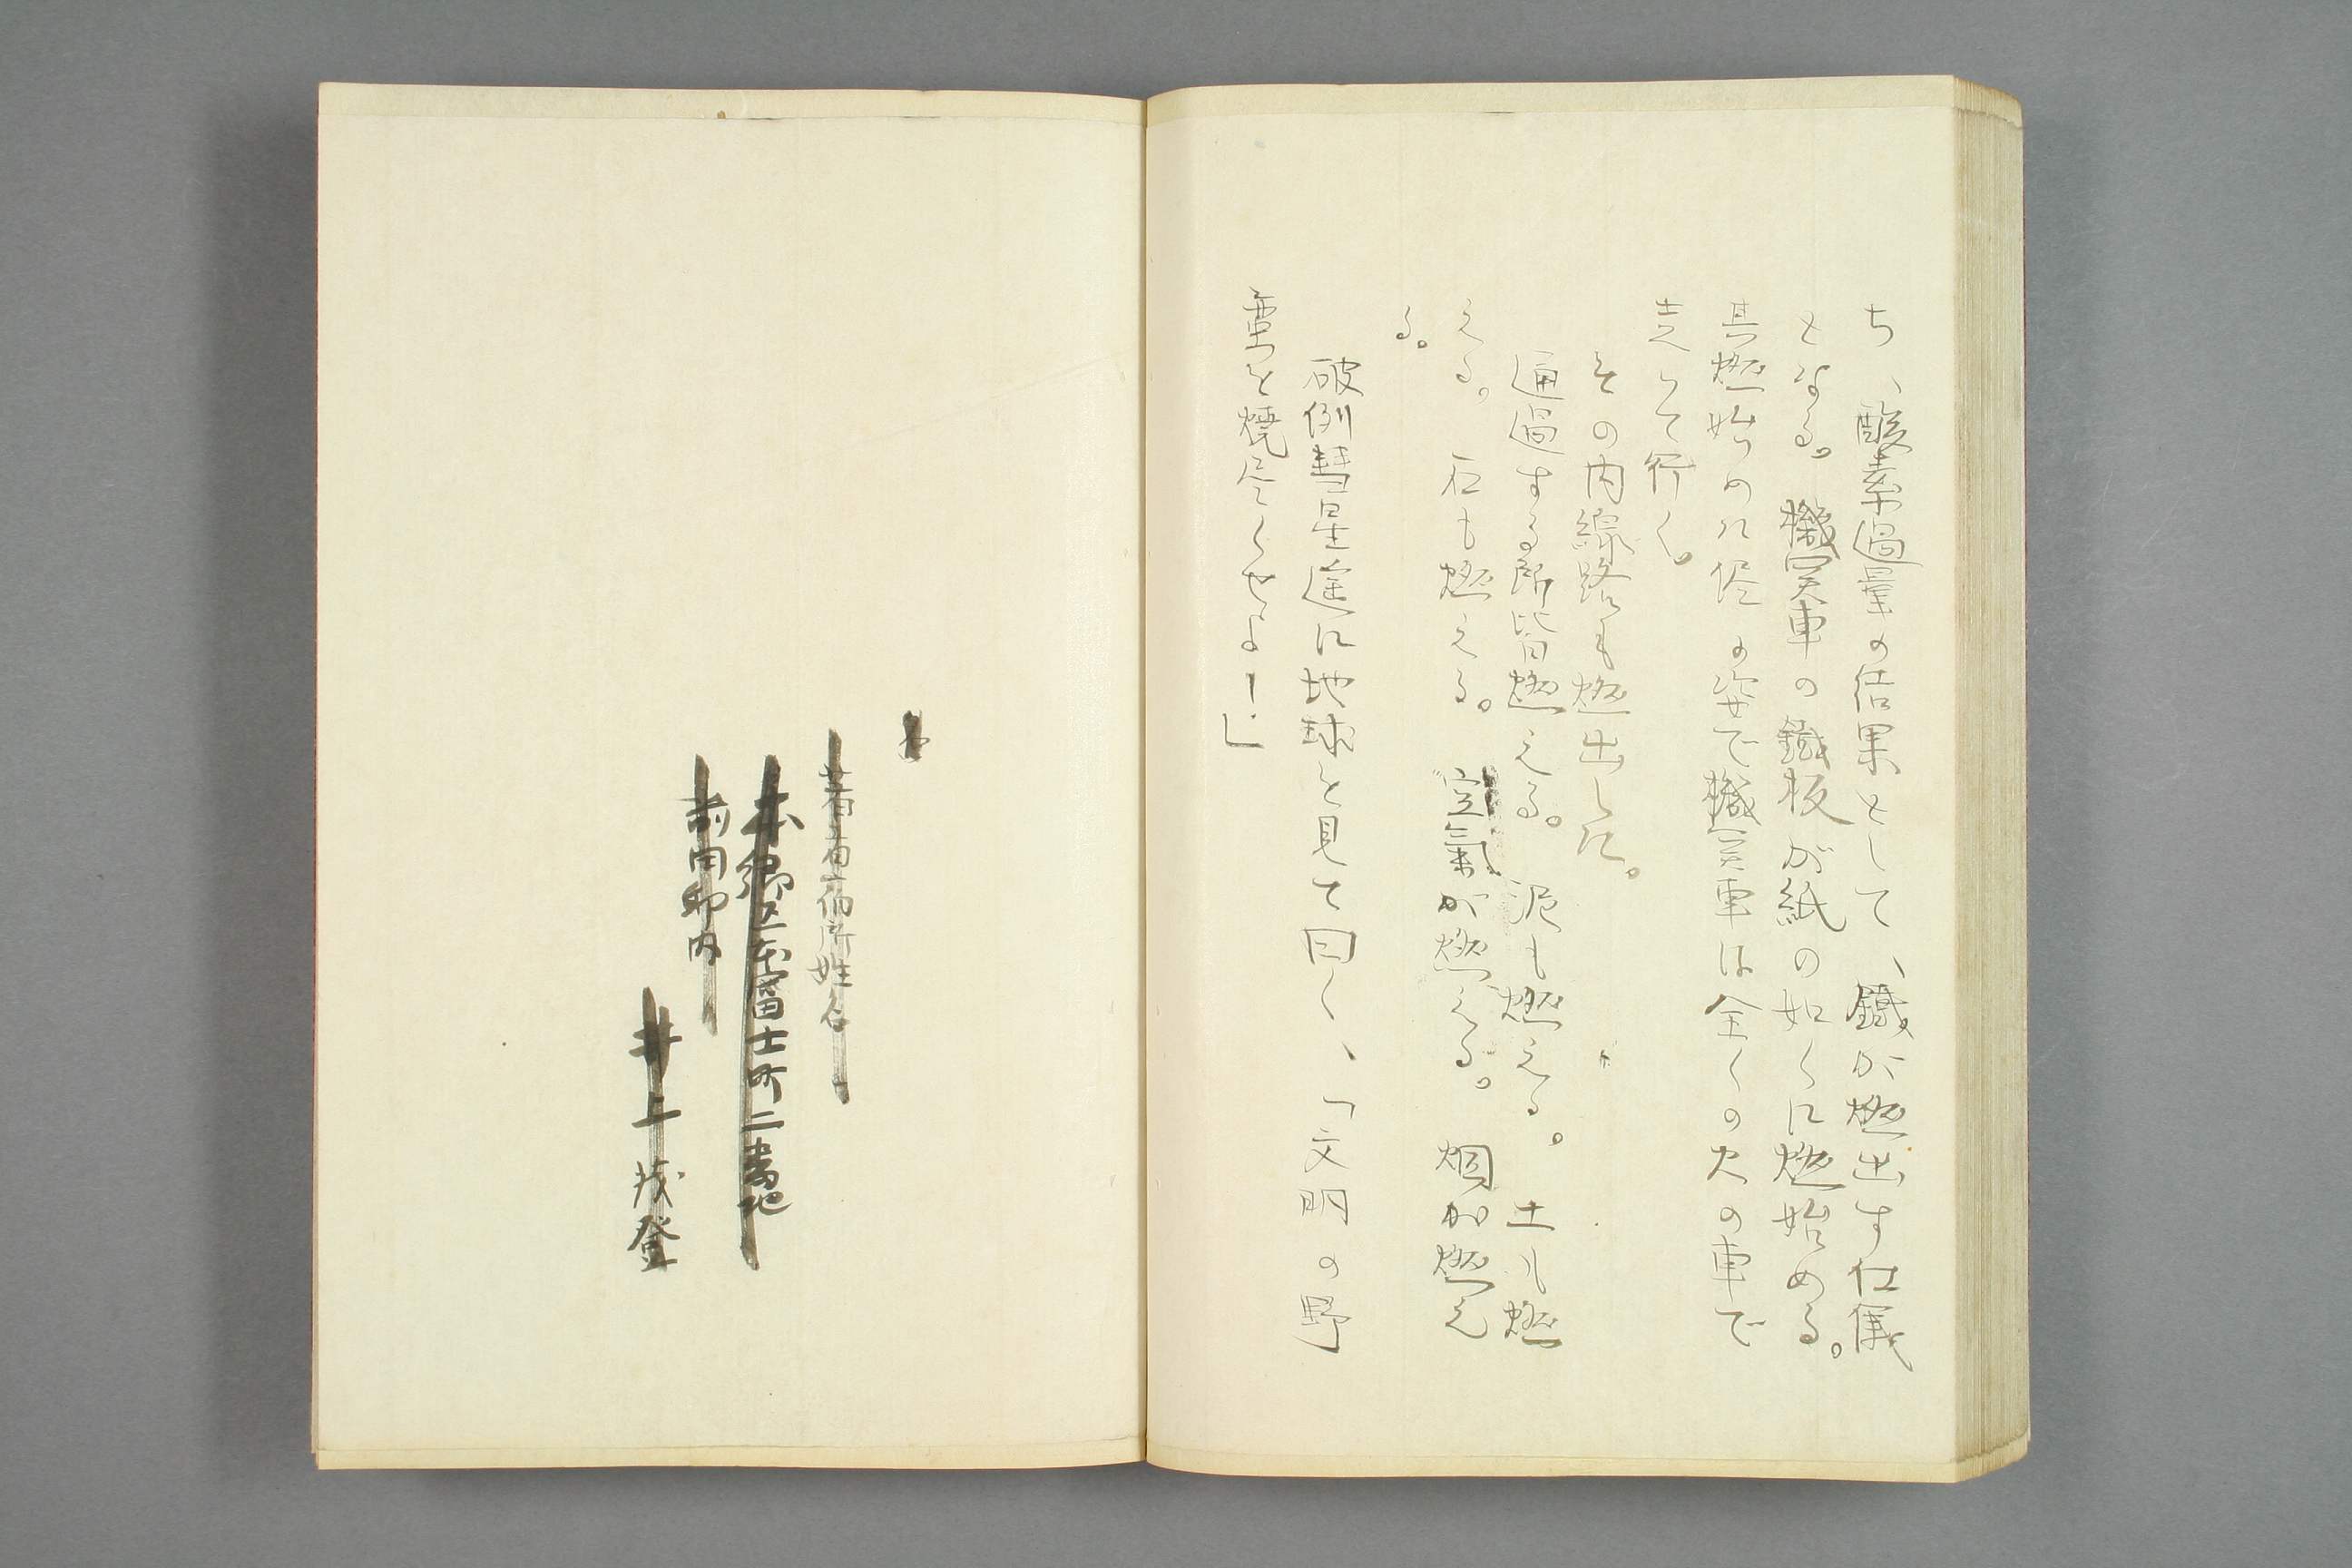 ち、酸素過量の結果として、鐵が燃出す仕儀
となる。機関車の鐵板が紙の如くに燃始める。
其燃始めれ侭の姿で機関車は全くの火の車で
走って行く。
その内線路も燃出した。
通過する所皆燃える。泥も燃える。土も燃
える。石も燃える。空氣が燃える。烟が燃え
る。
破例彗星遙に地球を見て曰く、「文明の野
蛮を焼尽くせよ！」
著者住所姓名
本郷区本富士町二番地
前田邸内
井上茂登